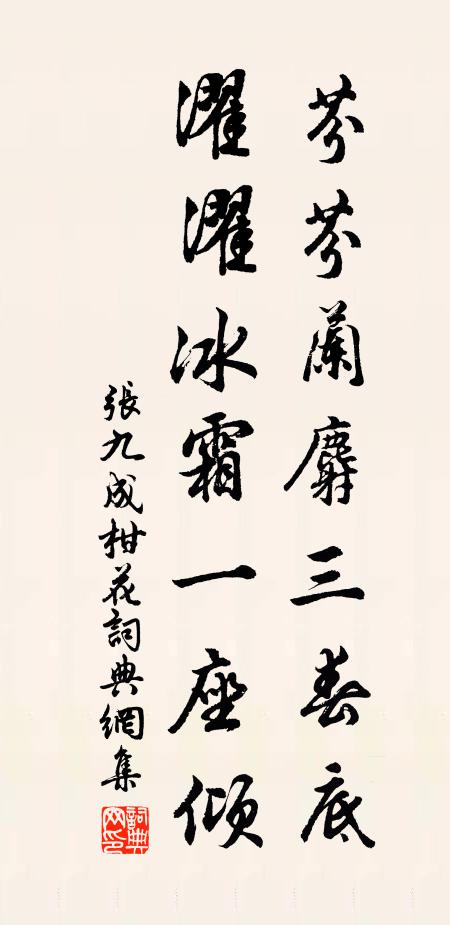 芬芬蘭麝三春底
濯濯冰霜一座傾
張九成柑花詞典網集
詞典网印